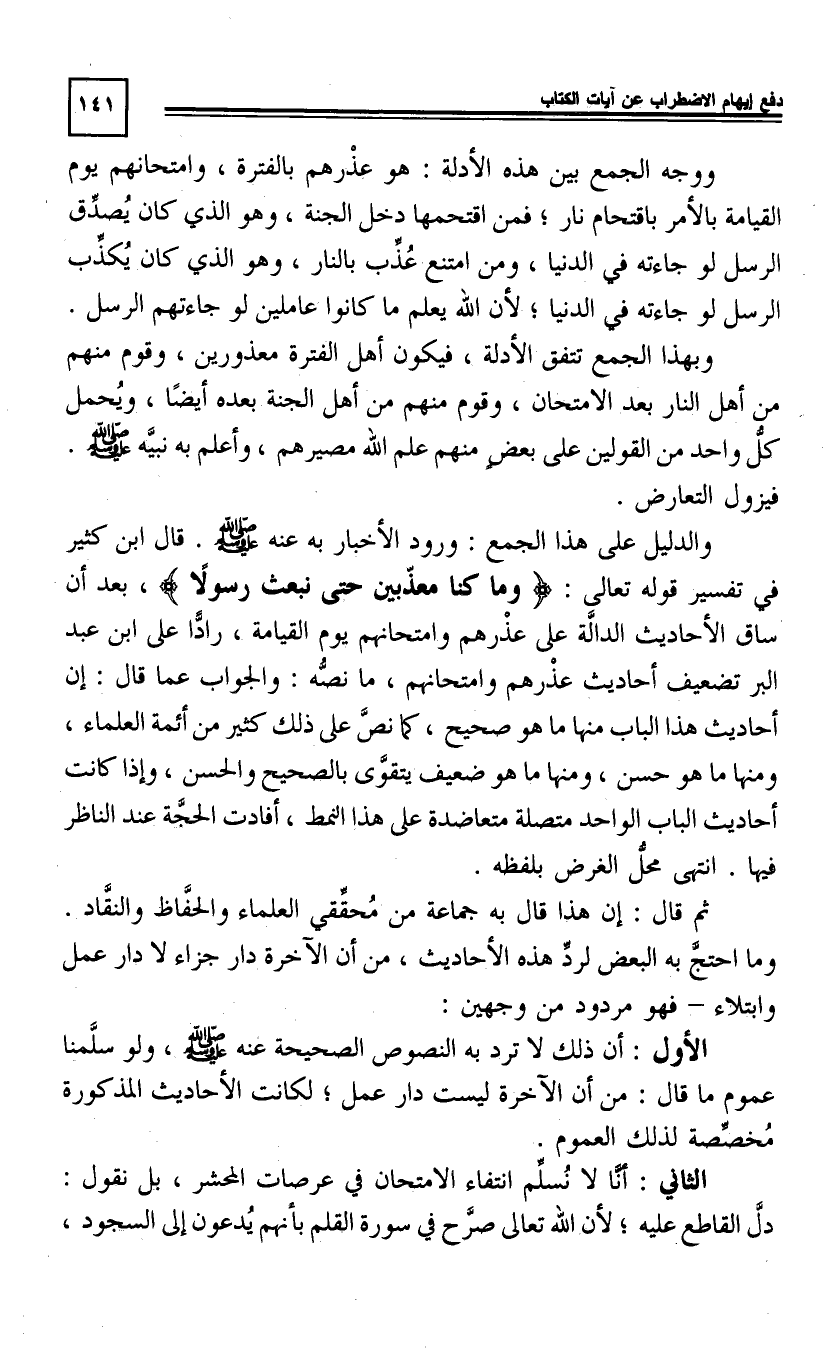 دفع إيهام الاضطراب عن آيات الكتاب
١٤١
ووجه الجمع بين هذه الأدلة : هو عذْرهم بالفترة ، وامتحانهم يوم
القيامة بالأمر باقتحام نار ؛ فمن اقتحمها دخل الجنة ، وهو الذي كان يُصدِّق
الرسل لو جاءته في الدنيا ، ومن امتنع عُذِّب بالنار ، وهو الذي كان يُكذِّب
الرسل لو جاءته في الدنيا ؛ لأن الله يعلم ما كانوا عاملين لو جاءتهم الرسل .
وبهذا الجمع تتفق الأدلة ، فيكون أهل الفترة معذورين ، وقوم منهم
من أهل النار بعد الامتحان ، وقوم منهم من أهل الجنة بعده أيضًا ، ويُحمل
كلُّ واحد من القولين على بعضٍ منهم علم الله مصيرهم ، وأعلم به نبيَّه ﷺ .
فيزول التعارض .
والدليل على هذا الجمع : ورود الأخبار به عنه ﷺ . قال ابن كثير
في تفسير قوله تعالى : ﴿ وما كنا معذّبين حتى نبعث رسولًا ﴾ ، بعد أن
ساق الأحاديث الدالَّة على عذْرهم وامتحانهم يوم القيامة ، رادًّا على ابن عبد
البر تضعيف أحاديث عذْرهم وامتحانهم ، ما نصُّه : والجواب عما قال : إن
أحاديث هذا الباب منها ما هو صحيح ، كما نصَّ على ذلك كثير من أئمة العلماء ،
ومنها ما هو حسن ، ومنها ما هو ضعيف يتقوَّى بالصحيح والحسن ، وإذا كانت
أحاديث الباب الواحد متصلة متعاضدة على هذا النمط ، أفادت الحجَّة عند الناظر
فيها . انتهى محلُّ الغرض بلفظه .
ثم قال : إن هذا قال به جماعة من مُحقِّقي العلماء والحفَّاظ والنقَّاد .
وما احتجَّ به البعض لردِّ هذه الأحاديث ، من أن الآخرة دار جزاء لا دار عمل
وابتلاء – فهو مردود من وجهين :
الأول : أن ذلك لا ترد به النصوص الصحيحة عنه ﷺ ، ولو سلَّمنا
عموم ما قال : من أن الآخرة ليست دار عمل ؛ لكانت الأحاديث المذكورة
مُخصِّصة لذلك العموم .
الثاني : أنَّا لا نُسلِّم انتفاء الامتحان في عرصات المحشر ، بل نقول :
دلَّ القاطع عليه ؛ لأن الله تعالى صرَّح في سورة القلم بأنهم يُدعون إلى السجود ،